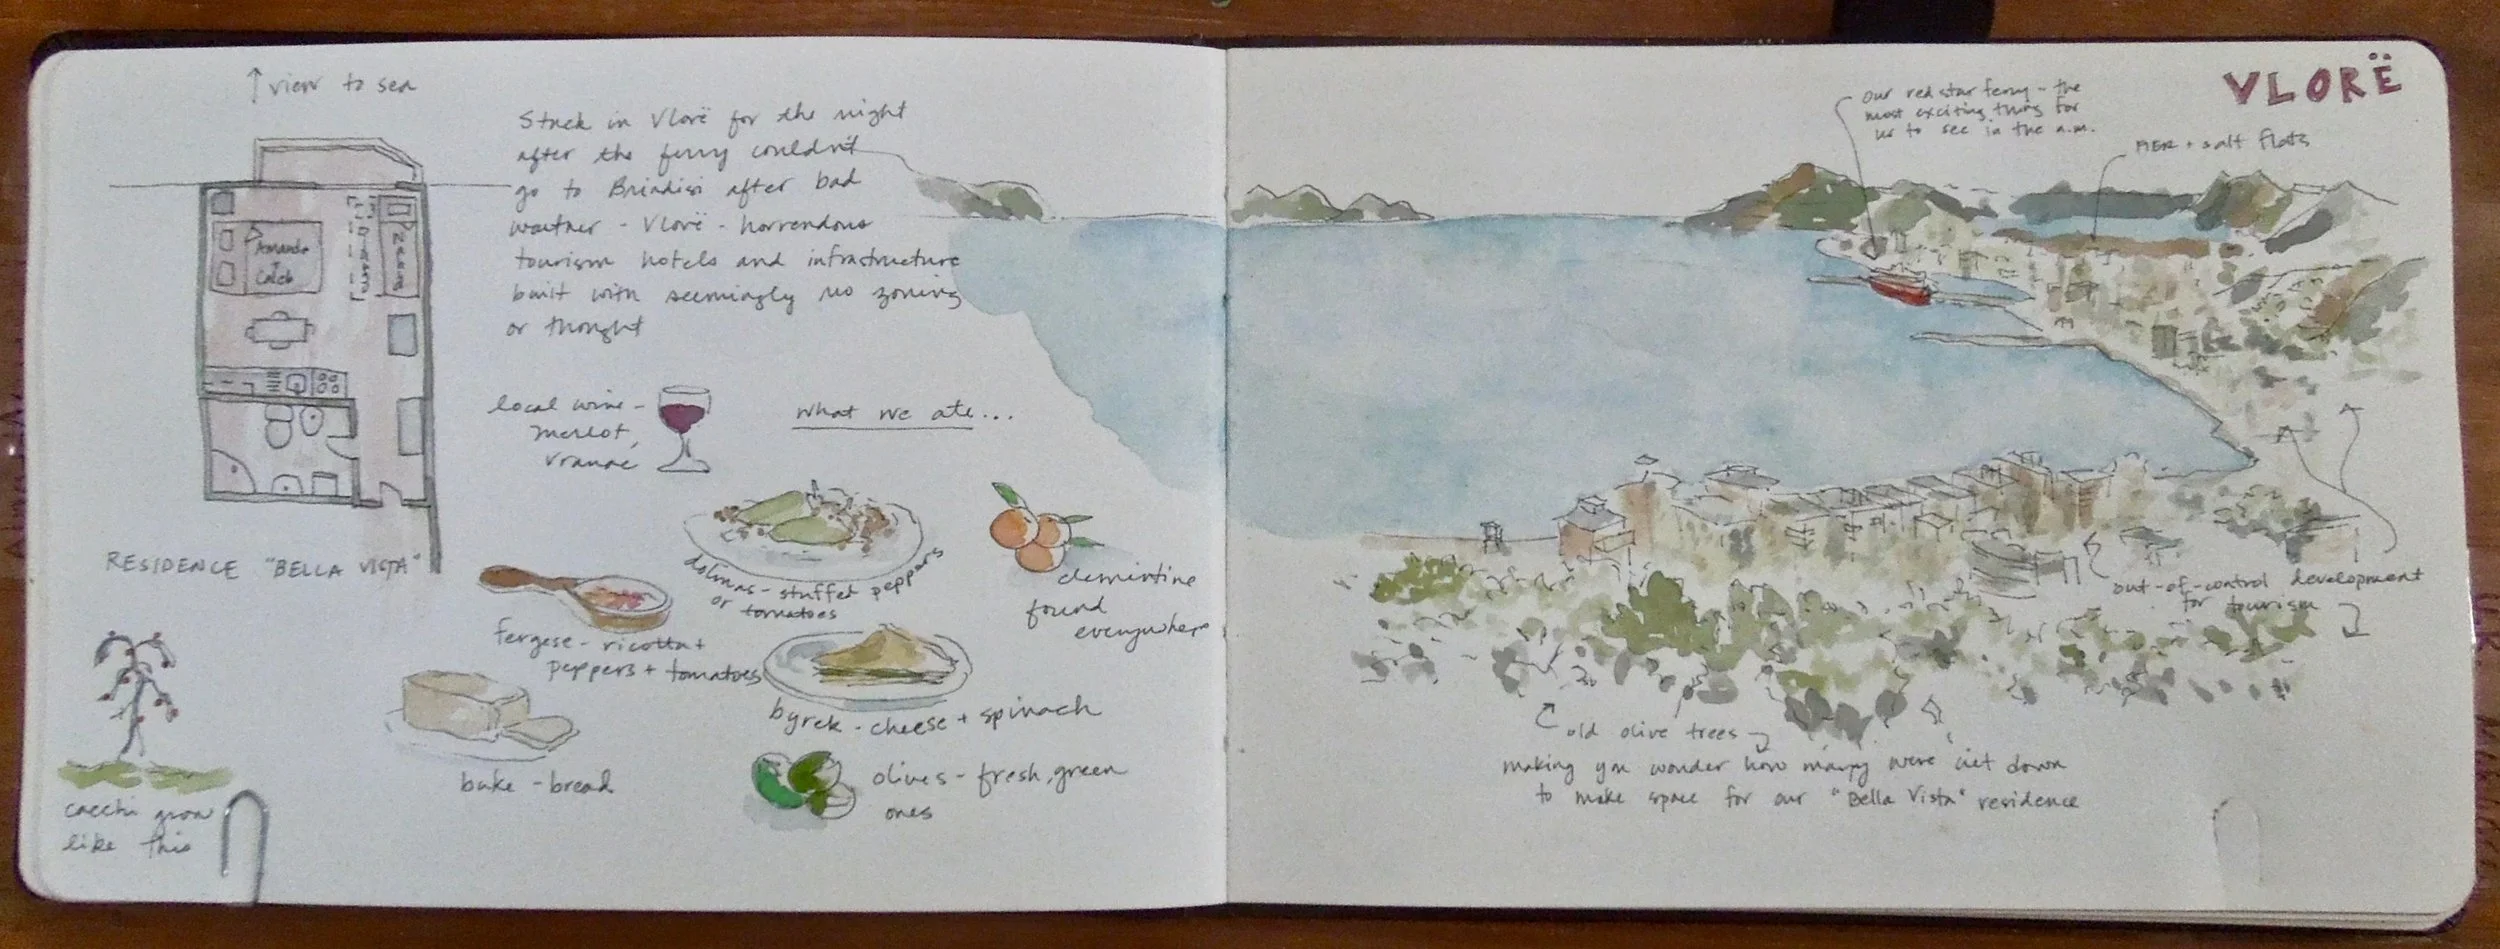 ↑ view to sea
Amanda
+
Caleb
RESIDENCE "BELLA VISTA"
Stuck in Vlorë for the night
after the ferry couldn't
go to Brindisi after bad
weather - Vlorë - horrendous
tourism hotels and infrastructure
built with seemingly no zoning
or thought
local wine -
merlot,
vranac
what we ate...
dolmas - stuffed peppers
or tomatoes
clementine
found
everywhere
fergese - ricotta +
peppers + tomatoes
byrek - cheese + spinach
buke - bread
olives - fresh, green
ones
cacchi grow
like this
VLORË
our red star ferry - the
most exciting thing for
us to see in the a.m.
PIER + salt flats
out-of-control development
for tourism
old olive trees
making you wonder how many were cut down
to make space for our "Bella Vista" residence